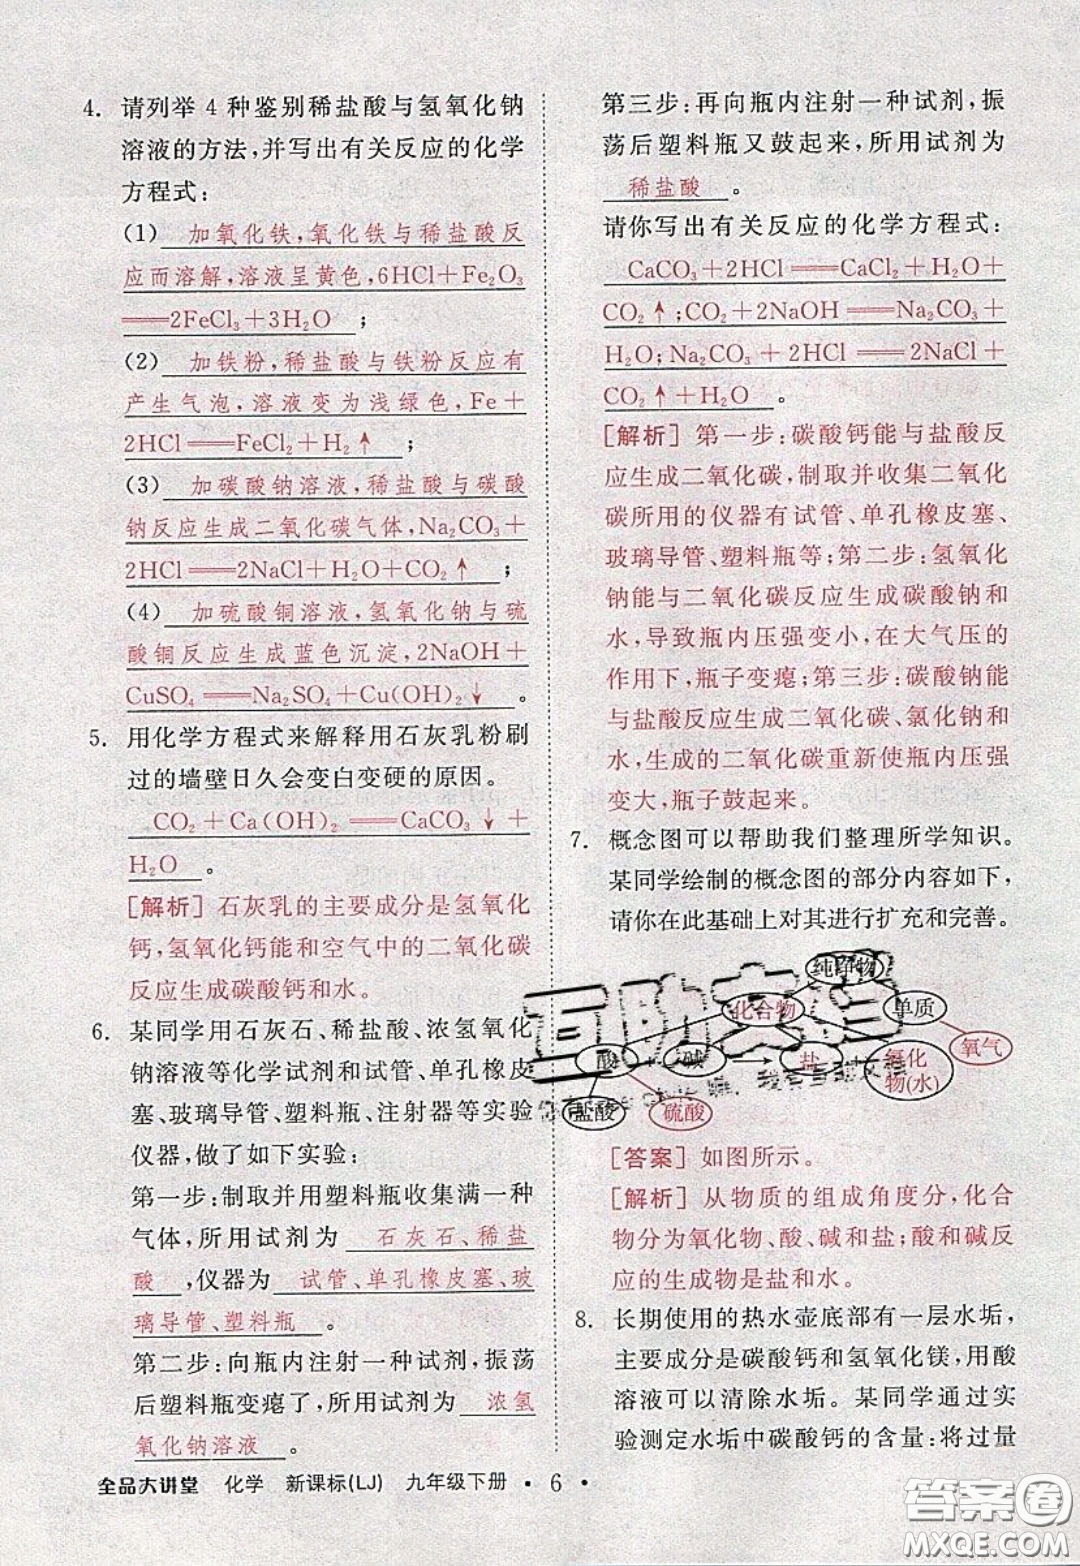 4. 请列举 4 种鉴别稀盐酸与氢氧化钠
溶液的方法,并写出有关反应的化学
方程式:
(1) 加氧化铁,氧化铁与稀盐酸反
应而溶解,溶液呈黄色,6HCl+Fe₂O₃
══2FeCl₃+3H₂O ;
(2) 加铁粉,稀盐酸与铁粉反应有
产生气泡,溶液变为浅绿色,Fe+
2HCl══FeCl₂+H₂↑ ;
(3) 加碳酸钠溶液,稀盐酸与碳酸
钠反应生成二氧化碳气体,Na₂CO₃+
2HCl══2NaCl+H₂O+CO₂↑ ;
(4) 加硫酸铜溶液,氢氧化钠与硫
酸铜反应生成蓝色沉淀,2NaOH+
CuSO₄══Na₂SO₄+Cu(OH)₂↓ 。
5. 用化学方程式来解释用石灰乳粉刷
过的墙壁日久会变白变硬的原因。
CO₂+Ca(OH)₂══CaCO₃↓+
H₂O 。
[解析] 石灰乳的主要成分是氢氧化
钙,氢氧化钙能和空气中的二氧化碳
反应生成碳酸钙和水。
6. 某同学用石灰石、稀盐酸、浓氢氧化
钠溶液等化学试剂和试管、单孔橡皮
塞、玻璃导管、塑料瓶、注射器等实验
仪器,做了如下实验:
第一步:制取并用塑料瓶收集满一种
气体,所用试剂为 石灰石、稀盐
酸 ,仪器为 试管、单孔橡皮塞、玻
璃导管、塑料瓶 。
第二步:向瓶内注射一种试剂,振荡
后塑料瓶变瘪了,所用试剂为 浓氢
氧化钠溶液 。
第三步:再向瓶内注射一种试剂,振
荡后塑料瓶又鼓起来,所用试剂为
稀盐酸 。
请你写出有关反应的化学方程式:
CaCO₃+2HCl══CaCl₂+H₂O+
CO₂↑;CO₂+2NaOH══Na₂CO₃+
H₂O;Na₂CO₃+2HCl══2NaCl+
CO₂↑+H₂O 。
[解析] 第一步:碳酸钙能与盐酸反
应生成二氧化碳,制取并收集二氧化
碳所用的仪器有试管、单孔橡皮塞、
玻璃导管、塑料瓶等;第二步:氢氧化
钠能与二氧化碳反应生成碳酸钠和
水,导致瓶内压强变小,在大气压的
作用下,瓶子变瘪;第三步:碳酸钠能
与盐酸反应生成二氧化碳、氯化钠和
水,生成的二氧化碳重新使瓶内压强
变大,瓶子鼓起来。
7. 概念图可以帮助我们整理所学知识。
某同学绘制的概念图的部分内容如下,
请你在此基础上对其进行扩充和完善。
纯净物
化合物
单质
酸
碱
盐
氧化
物(水)
氧气
盐酸
硫酸
[答案] 如图所示。
[解析] 从物质的组成角度分,化合
物分为氧化物、酸、碱和盐;酸和碱反
应的生成物是盐和水。
8. 长期使用的热水壶底部有一层水垢,
主要成分是碳酸钙和氢氧化镁,用酸
溶液可以清除水垢。某同学通过实
验测定水垢中碳酸钙的含量:将过量
全品大讲堂 化学 新课标(LJ) 九年级下册 • 6 •
答案圈
MXQE.COM